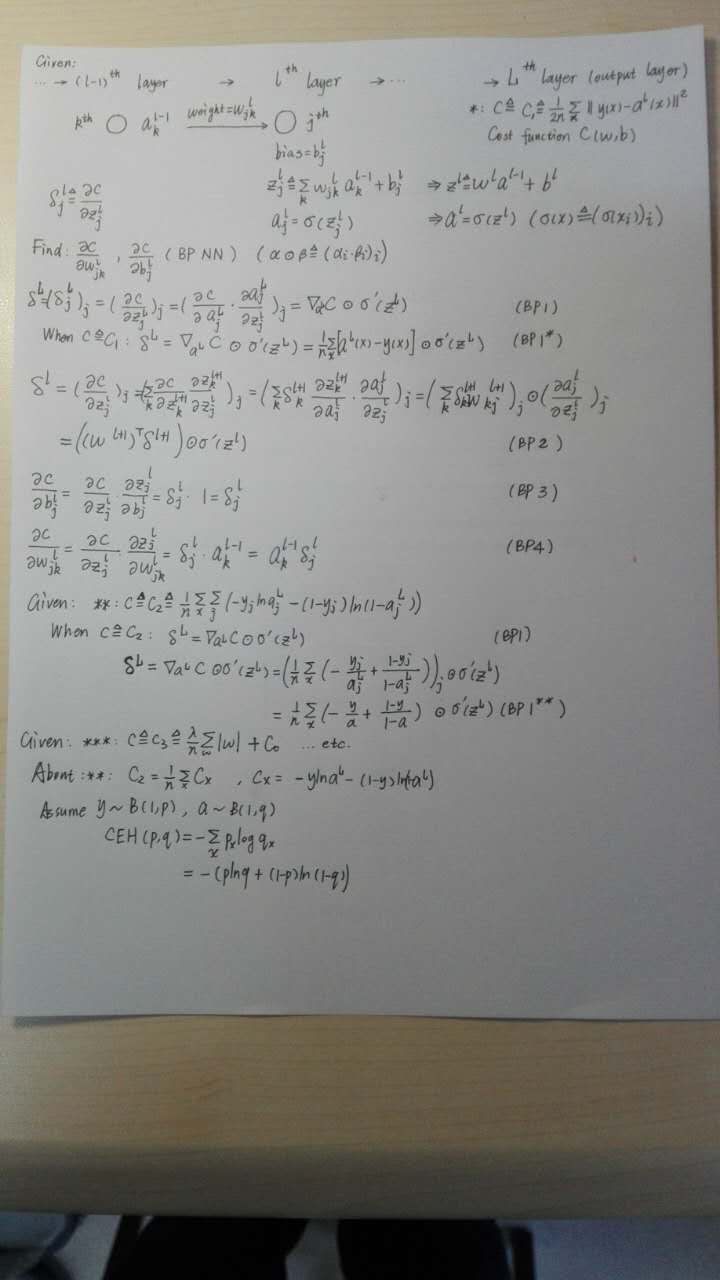 Given:
… → (l-1)ᵗʰ layer → lᵗʰ layer → … → Lᵗʰ layer (output layer)
*: C ≜ C₁ ≜ 1/2n ∑_x ‖y(x) - a^L(x)‖²
kᵗʰ ○ a_k^{l-1} weight=w_{jk}^l → ○ jᵗʰ
Cost function C(w,b)
bias=b_j^l
δ_j^l ≜ ∂C/∂z_j^l z_j^l ≜ ∑_k w_{jk}^l a_k^{l-1} + b_j^l ⇒ z^l ≜ w^l a^{l-1} + b^l
a_j^l = σ(z_j^l) ⇒ a^l = σ(z^l) (σ(x) ≜ (σ(x_i))_i)
Find: ∂C/∂w_{jk}^l , ∂C/∂b_j^l (BP NN) (α⊙β ≜ (α_i·β_i)_i)
δ^L = (δ_j^L)_j = (∂C/∂z_j^L)_j = (∂C/∂a_j^L · ∂a_j^L/∂z_j^L)_j = ∇_{a^L} C ⊙ σ′(z^L) (BP1)
When C ≜ C₁: δ^L = ∇_{a^L} C ⊙ σ′(z^L) = 1/n ∑_x [a^L(x) - y(x)] ⊙ σ′(z^L) (BP1*)
δ^l = (∂C/∂z_j^l)_j = (∑_k ∂C/∂z_k^{l+1} ∂z_k^{l+1}/∂z_j^l)_j = (∑_k δ_k^{l+1} ∂z_k^{l+1}/∂a_j^l · ∂a_j^l/∂z_j^l)_j = (∑_k δ_k^{l+1} w_{kj}^{l+1})_j ⊙ (∂a_j^l/∂z_j^l)_j
= ((w^{l+1})^T δ^{l+1}) ⊙ σ′(z^l) (BP2)
∂C/∂b_j^l = ∂C/∂z_j^l · ∂z_j^l/∂b_j^l = δ_j^l · 1 = δ_j^l (BP3)
∂C/∂w_{jk}^l = ∂C/∂z_j^l · ∂z_j^l/∂w_{jk}^l = δ_j^l · a_k^{l-1} = a_k^{l-1} δ_j^l (BP4)
Given: **: C ≜ C₂ ≜ 1/n ∑_x ∑_j (-y_j ln a_j^L - (1-y_j) ln(1-a_j^L))
When C ≜ C₂: δ^L = ∇_{a^L} C ⊙ σ′(z^L) (BP1)
δ^L = ∇_{a^L} C ⊙ σ′(z^L) = (1/n ∑_x (- y_j/a_j^L + 1-y_j/1-a_j^L))_j ⊙ σ′(z^L)
= 1/n ∑_x (- y/a + 1-y/1-a) ⊙ σ′(z^L) (BP1**)
Given: ***: C ≜ C₃ ≜ λ/n ∑_w |w| + C₀ … etc.
About: **: C₂ = 1/n ∑_x C_x , C_x = -y ln a^L - (1-y) ln(1-a^L)
Assume y ~ B(1,p) , a ~ B(1,q)
CEH(p,q) = -∑_x p_x log q_x
= -(p ln q + (1-p) ln(1-q))